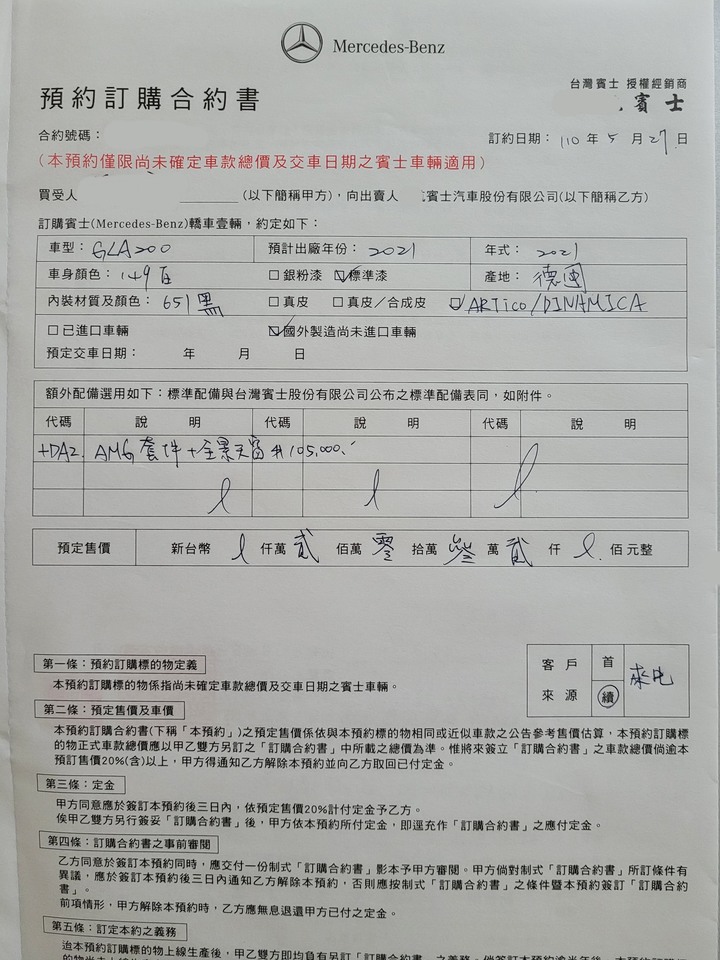 Mercedes-Benz
預約訂購合約書
台灣賓士 授權經銷商
賓士
合約號碼：
訂約日期：110年5月27日
(本預約僅限尚未確定車款總價及交車日期之賓士車輛適用)
買受人 (以下簡稱甲方)，向出賣人 賓士汽車股份有限公司(以下簡稱乙方)
訂購賓士(Mercedes-Benz)轎車壹輛，約定如下：
車型：GLA200 預計出廠年份：2021 年式：2021
車身顏色：149白 □銀粉漆 ☑標準漆 產地：德國
內裝材質及顏色：651黑 □真皮 □真皮／合成皮 ☑ARTICO/DINAMICA
□已進口車輛 ☑國外製造尚未進口車輛
預定交車日期： 年 月 日
額外配備選用如下：標準配備與台灣賓士股份有限公司公布之標準配備表同，如附件。
代碼 說 明 代碼 說 明 代碼 說 明
+DA2. AMG套件+全景天窗 #105,000.-
預定售價 新台幣 仟萬 貳 佰萬 零 拾萬 參 萬 貳 仟 佰元整
第一條：預約訂購標的物定義
本預約訂購標的物係指尚未確定車款總價及交車日期之賓士車輛。
客戶來源 首 續 來電
第二條：預定售價及車價
本預約訂購合約書(下稱「本預約」)之預定售價係依與本預約標的物相同或近似車款之公告參考售價估算，本預約訂購標
的物正式車款總價應以甲乙雙方另訂之「訂購合約書」中所載之總價為準。惟將來簽立「訂購合約書」之車款總價倘逾本
預訂售價20%(含)以上，甲方得通知乙方解除本預約並向乙方取回已付定金。
第三條：定金
甲方同意應於簽訂本預約後三日內，依預定售價20%計付定金予乙方。
俟甲乙雙方另行簽妥「訂購合約書」後，甲方依本預約所付定金，即逕充作「訂購合約書」之應付定金。
第四條：訂購合約書之事前審閱
乙方同意於簽訂本預約同時，應交付一份制式「訂購合約書」影本予甲方審閱。甲方倘對制式「訂購合約書」所訂條件有
異議，應於簽訂本預約後三日內通知乙方解除本預約，否則應按制式「訂購合約書」之條件暨本預約簽訂「訂購合約
書」。
前項情形，甲方解除本預約時，乙方應無息退還甲方已付之定金。
第五條：訂定本約之義務
迨本預約訂購標的物上線生產後，甲乙雙方即均負有另訂「訂購合約書」之義務。倘簽訂本預約逾半年後，本預約訂購標